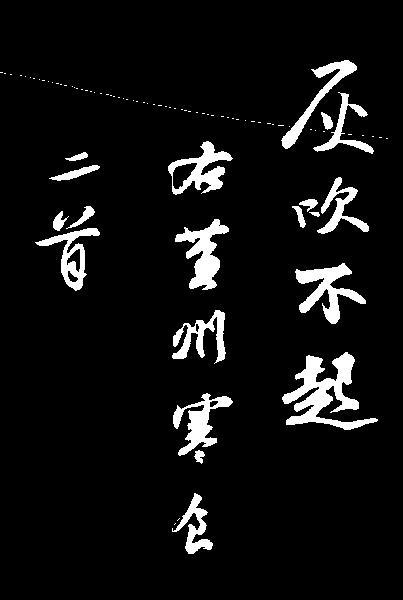 灰吹不起
右黃州寒食
二首